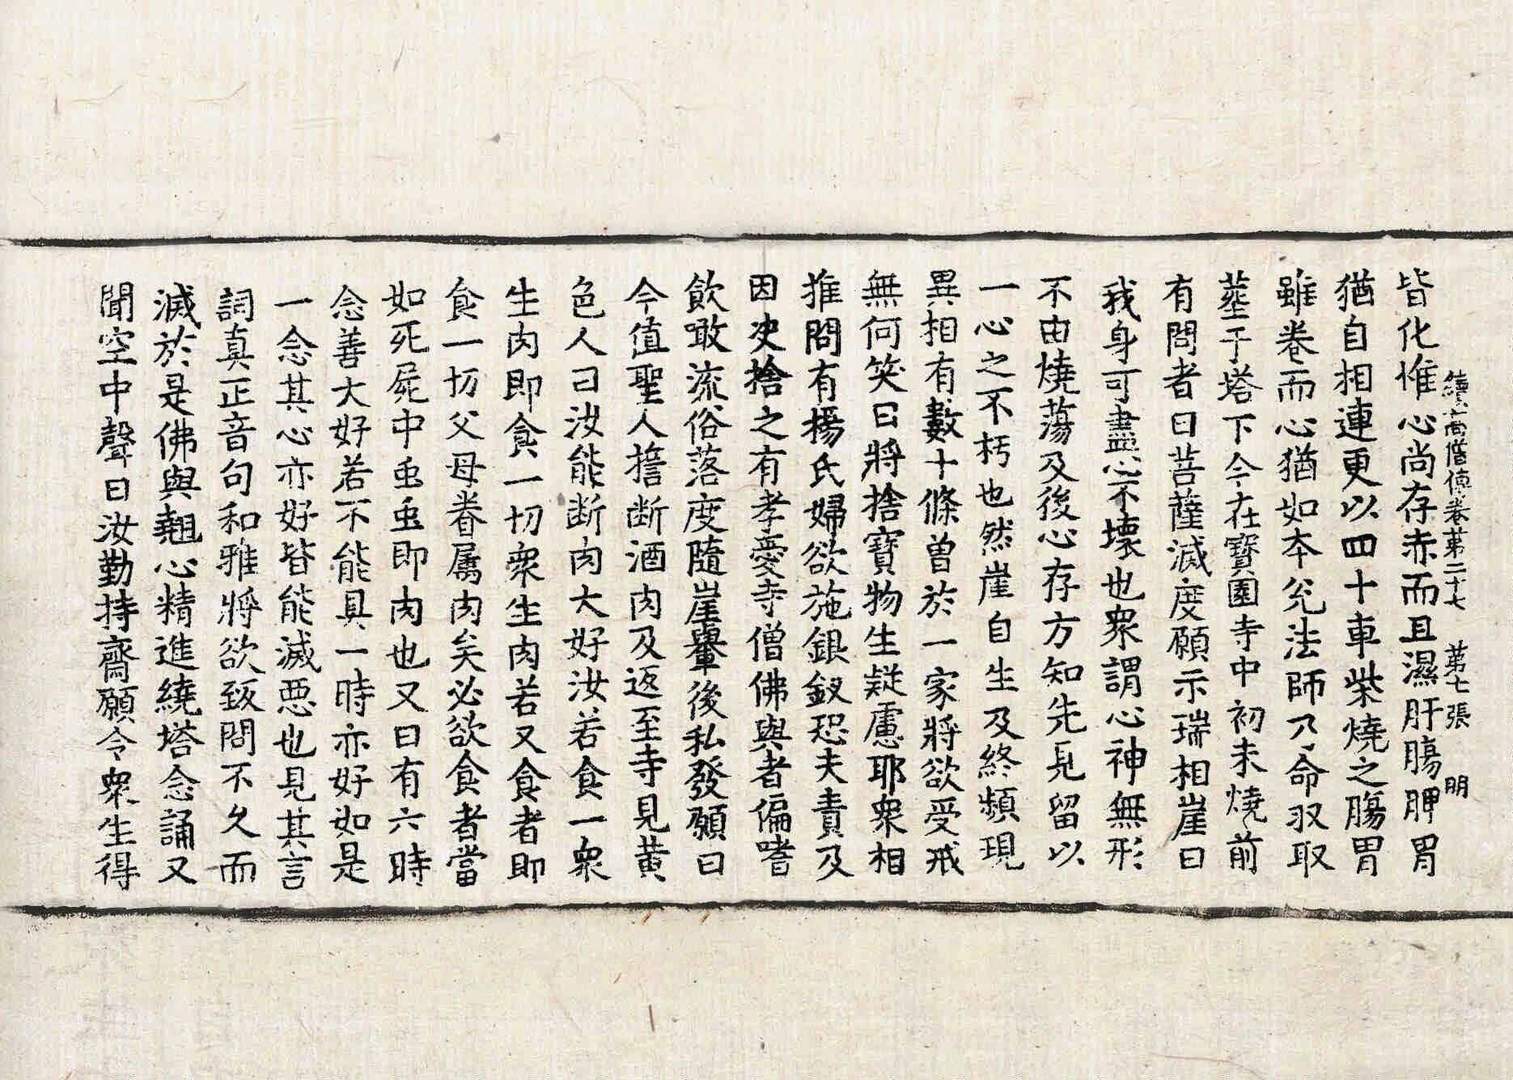 續高僧傳卷第二十七　第七張　明
皆化惟心尚存赤而且濕肝膓胛胃
猶自相連更以四十車柴燒之膓胃
雖卷而心猶如本兊法師乃命収取
塟于塔下今在寳園寺中初未燒前
有問者曰菩薩滅度願示瑞相崖曰
我身可盡心不壞也衆謂心神無形
不由燒蕩及後心存方知先見留以
一心之不朽也然崖自生及終頻現
異相有數十條曾於一家將欲受戒
無何笑曰將捨寳物生疑慮耶衆相
推問有楊氏婦欲施銀釵恐夫責及
因决捨之有孝愛寺僧佛與者偏嗜
飲噉流俗落度隨崖轝後私發願曰
今值聖人誓断酒肉及返至寺見黄
色人曰汝能断肉大好汝若食一衆
生肉即食一切衆生肉若又食者即
食一切父母眷属肉矣必欲食者當
如死屍中虫虫即肉也又曰有六時
念善大好若不能具一時亦好如是
一念其心亦好皆能滅惡也見其言
詞真正音句和雅將欲致問不久而
滅於是佛與翹心精進繞塔念誦又
聞空中聲曰汝勤持齋願令衆生得